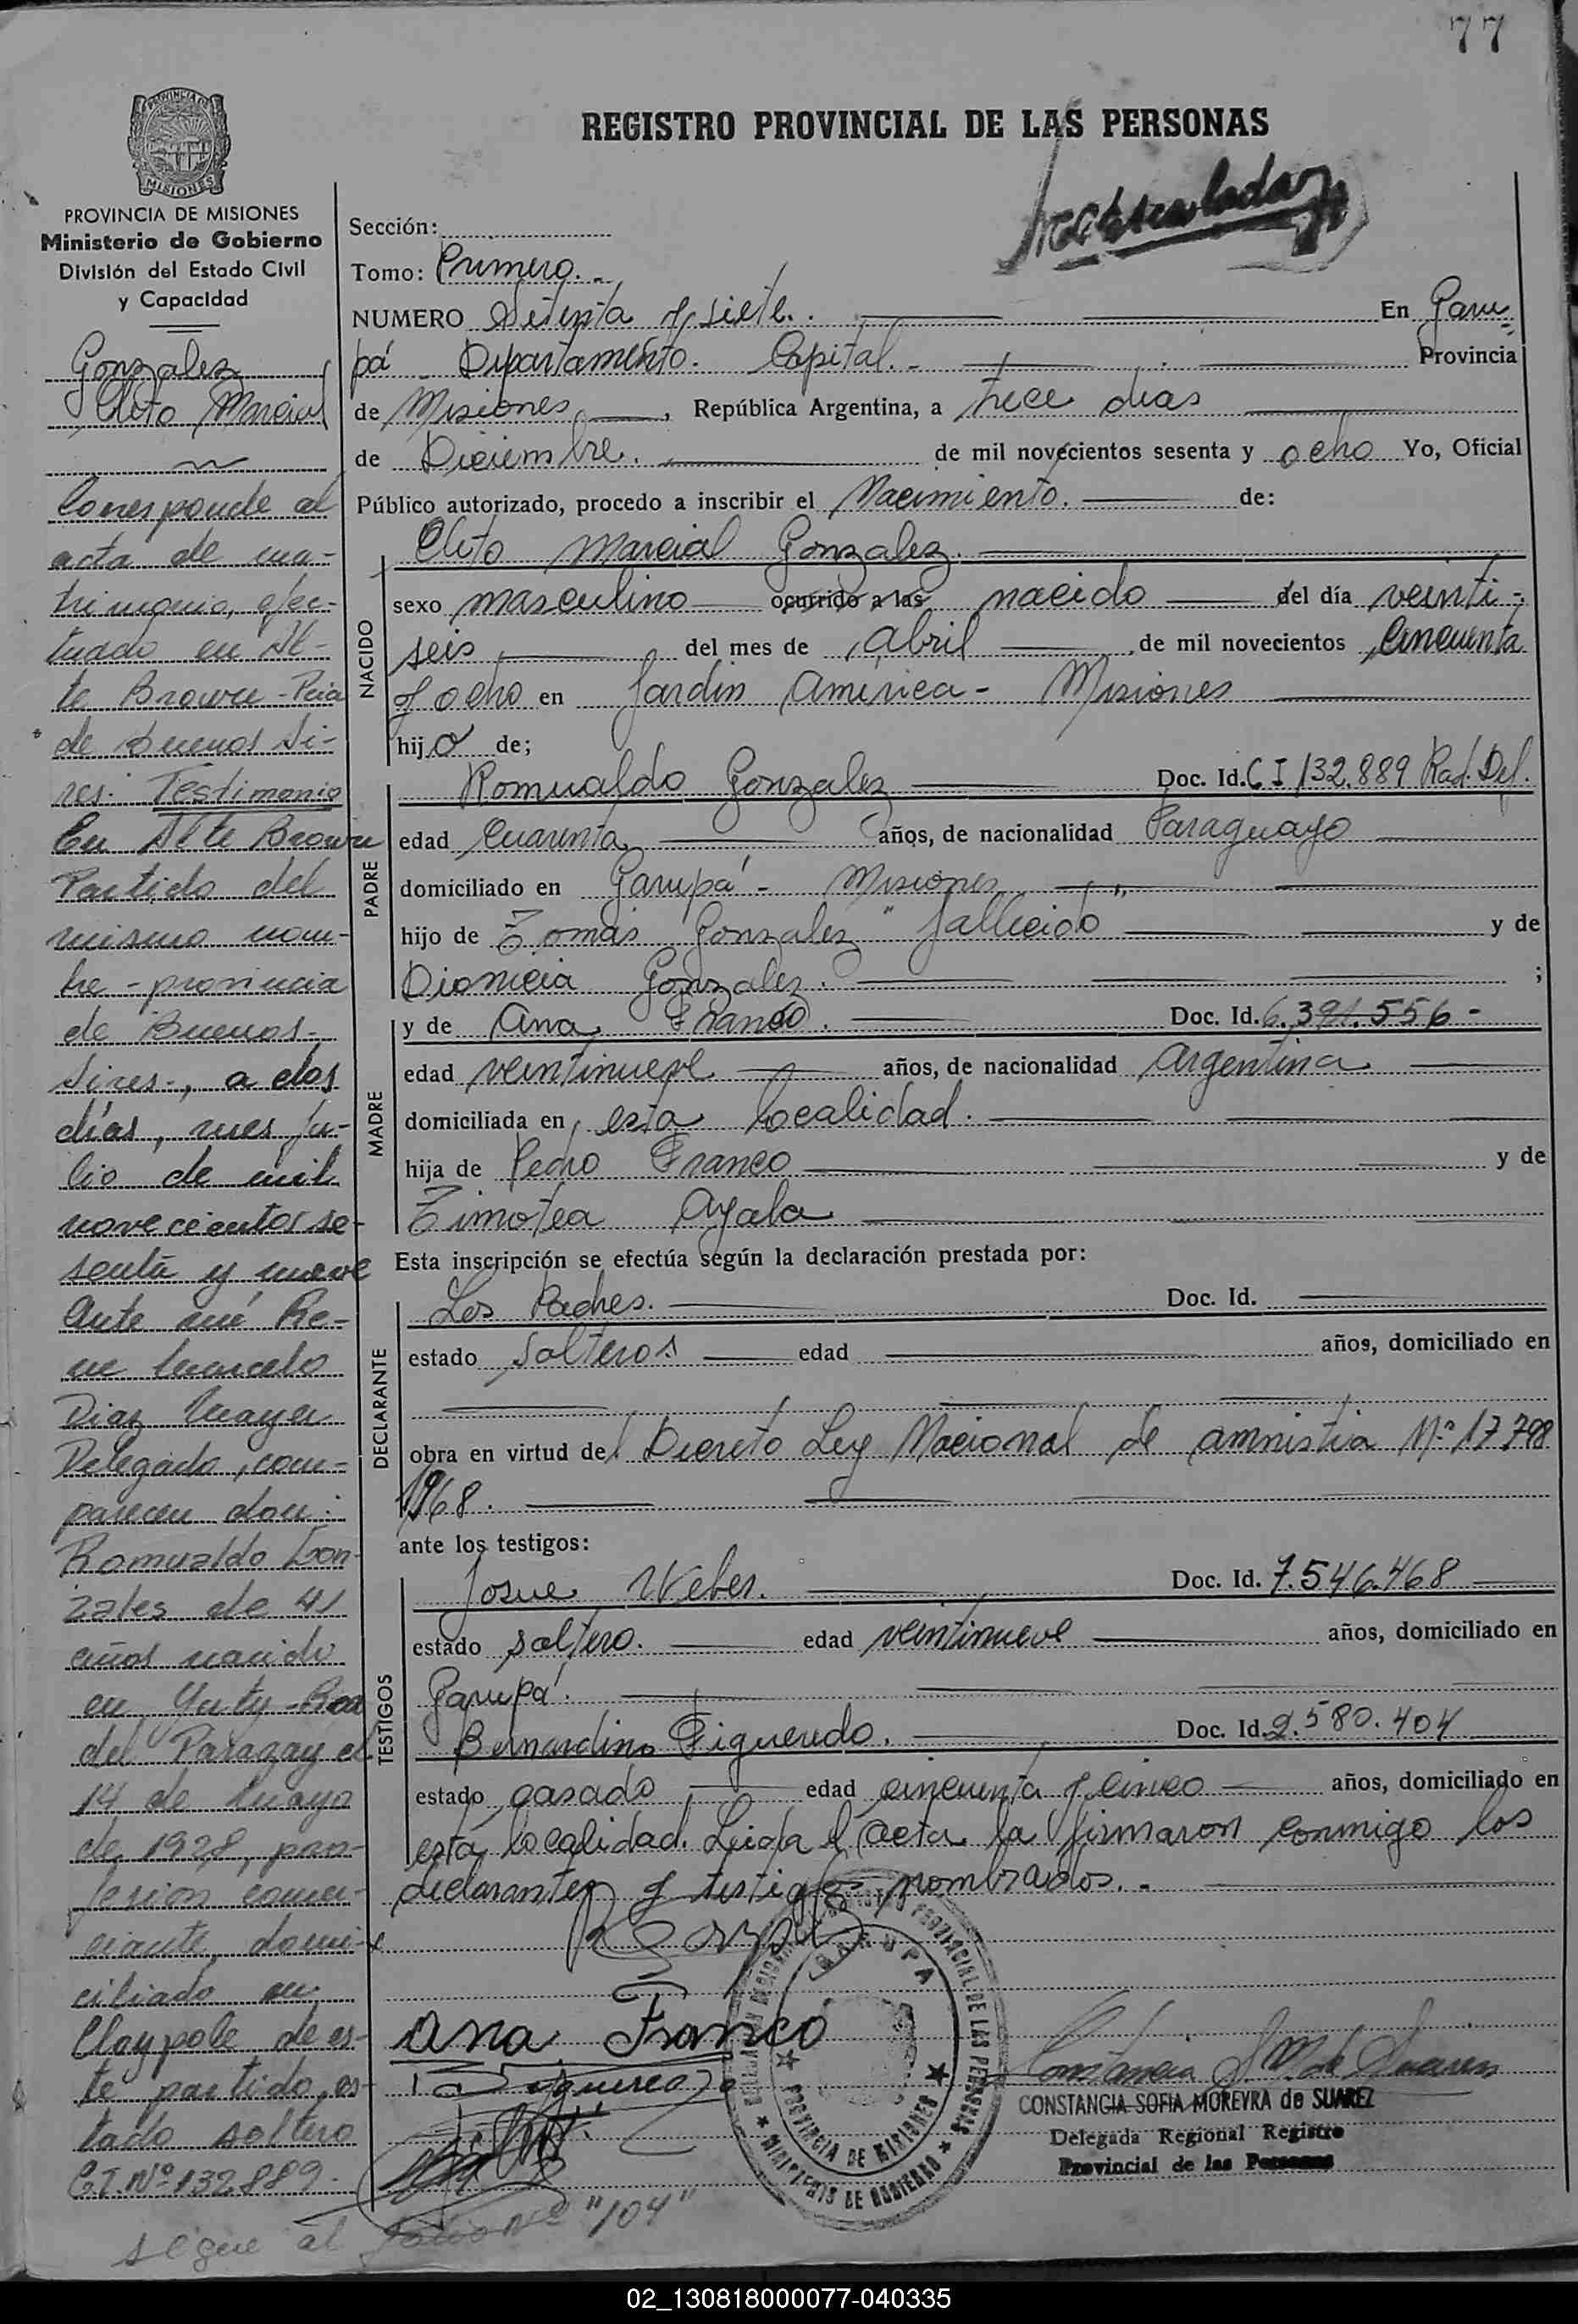 77
REGISTRO PROVINCIAL DE LAS PERSONAS
MISIONES
PROVINCIA DE MISIONES
Ministerio de Gobierno
División del Estado Civil
y Capacidad
Gonzalez
Cleto Marcial
Corresponde al
acta de ma-
trimonio, efec-
tuado en Al-
te Brown - Pcia
de Buenos Ai-
res. Testimonio
En Alte Brown
Partido del
mismo nom-
bre - provincia
de Buenos-
Aires-, a dos
días, mes Ju-
lio de mil
novecientos se-
senta y nueve
Ante mé Re-
ne Marcelo
Diaz Mayer
Delegado, com-
parecen don:
Romualdo Gon-
zales de 41
años nacido
en Yuty - Rca
del Paragay el
14 de Mayo
de 1928, pro-
fesion comer-
ciante, domi-
ciliado en
Claypole de es-
te partido, es-
tado soltero
C.I. Nº 132889.
sigue al folio nº "104"
Sección:
Tomo: Primero. -
NUMERO Setenta y siete. . En Garu
pá Departamento. Capital. - Provincia
de Misiones, República Argentina, a trece dias
de Diciembre. de mil novecientos sesenta y ocho Yo, Oficial
Público autorizado, procedo a inscribir el Nacimiento. de:
NACIDO
Cleto Marcial Gonzalez.
sexo masculino ocurrido a las nacido del día veinti-
seis del mes de Abril de mil novecientos Cincuenta
y ocho en Jardin América - Misiones
hijo de;
PADRE
Romualdo Gonzalez Doc. Id. C I 132.889 Rad. Def.
edad Cuarenta años, de nacionalidad Paraguayo
domiciliado en Garupá - Misiones
hijo de Tomás Gonzalez "fallecido y de
Dionicia Gonzalez. ;
MADRE
y de Ana Franco. Doc. Id. 6.391.556 -
edad veintinueve años, de nacionalidad Argentina
domiciliada en esta localidad.
hija de Pedro Franco y de
Timotea Ayala
Esta inscripción se efectúa según la declaración prestada por:
DECLARANTE
Los Padres. Doc. Id.
estado Solteros edad años, domiciliado en
obra en virtud del Decreto Ley Nacional de amnistia Nº 17798
1968.
ante los testigos:
TESTIGOS
Josue Weber. Doc. Id. 7.546.468
estado soltero. edad veintinueve años, domiciliado en
Garupá.
Bernardino Figueredo. Doc. Id. 2.580.404
estado casado edad cincuenta y cinco años, domiciliado en
esta localidad. Leida el acta la firmaron conmigo los
declarantes y testigos nombrados. -
Ana Franco
GARUPA
PROVINCIA DE MISIONES
MINISTERIO DE GOBIERNO
PROVINCIAL DE LAS PERSONAS
CONSTANCIA SOFIA MOREYRA de SUAREZ
Delegada Regional Registro
Provincial de las Personas
02_130818000077-040335